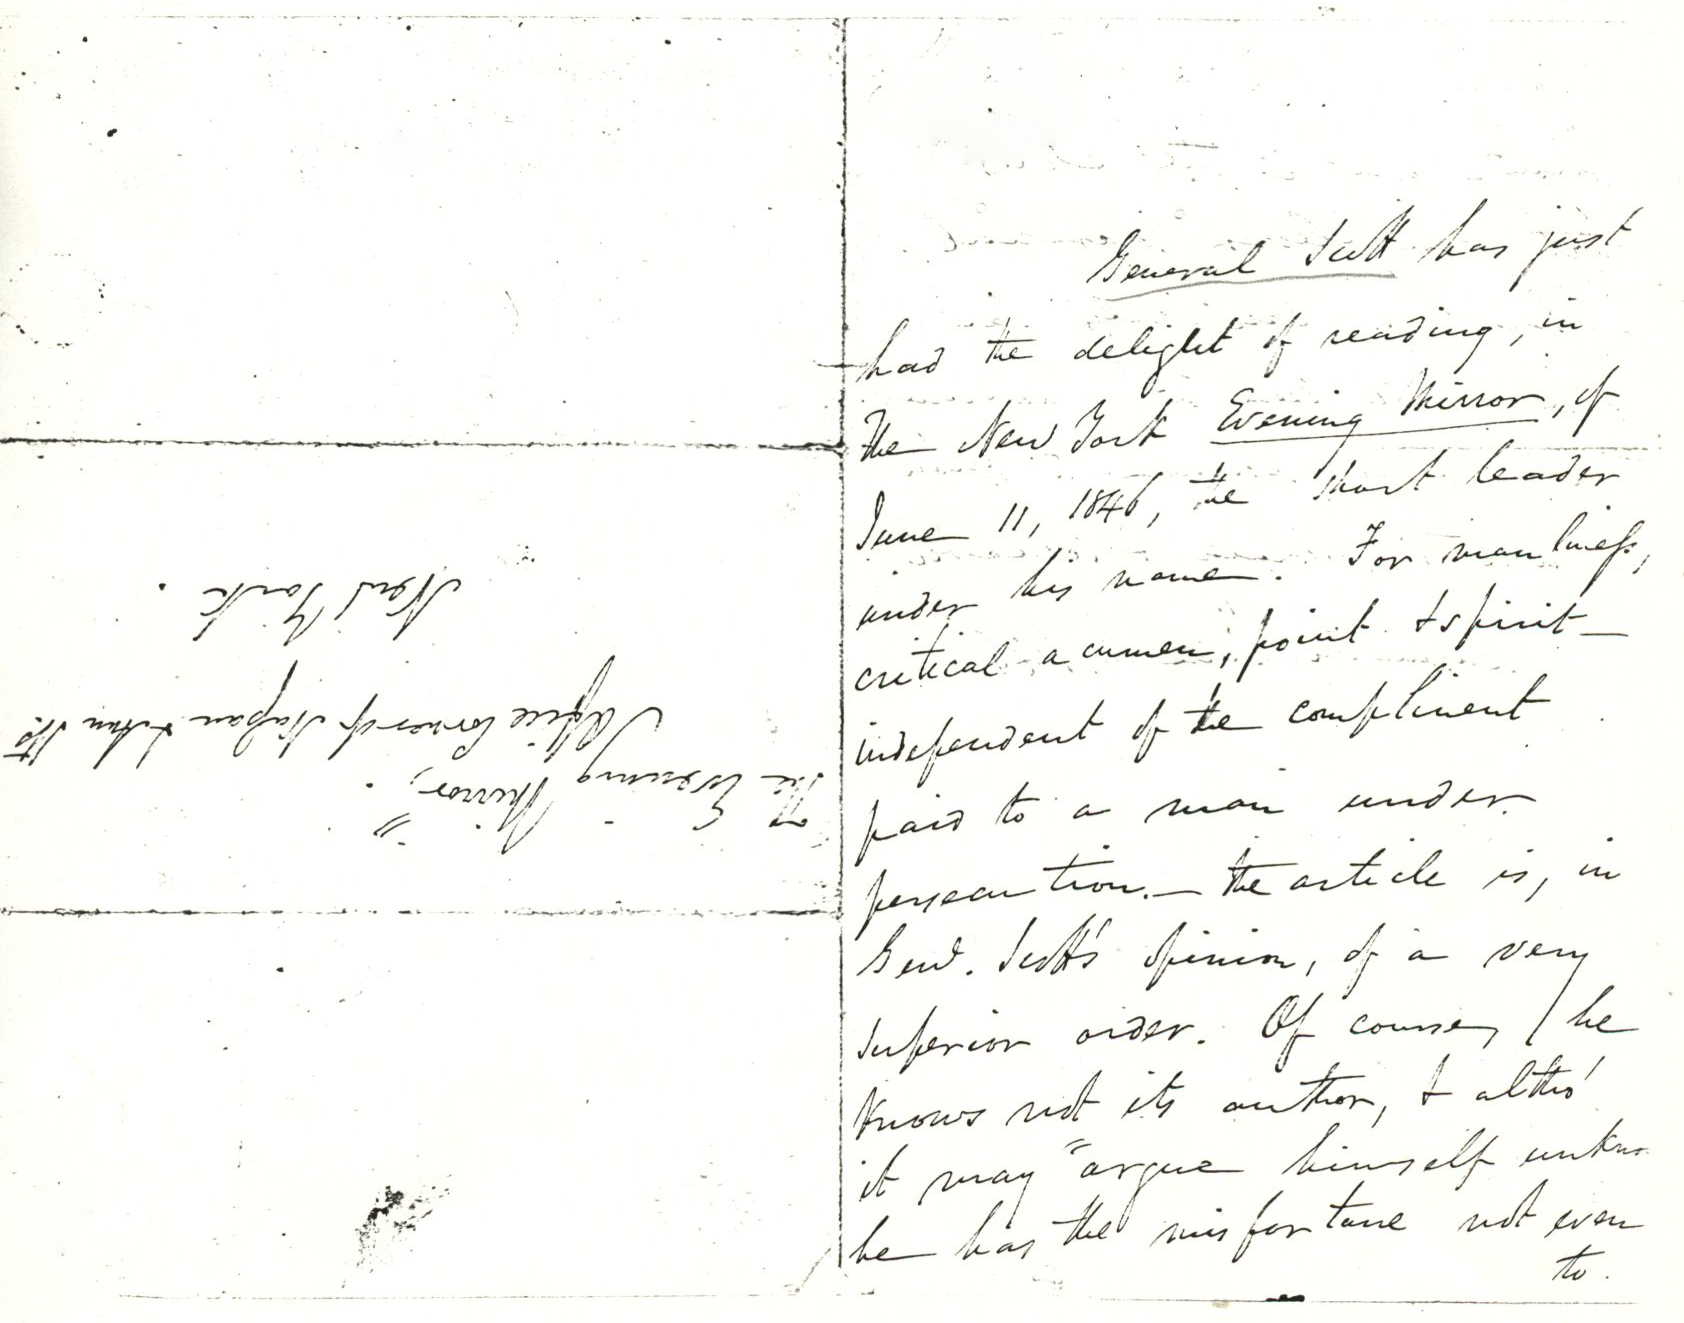 General Scott has just
had the delight of reading, in
the New York Evening Mirror, of
June 11, 1846, the short leader
under his name. For manliness,
critical acumen, point & spirit—
independent of the compliment
paid to a man under
persecution.— the article is, in
Genl. Scott's opinion, of a very
superior order. Of course, he
knows not its author, & altho'
it may "argue himself unkno
he has the misfortune not even
to
"The Evening Mirror,"
Office Corner of Nassau & Ann Sts
New York.